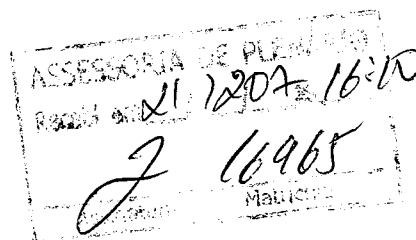 ASSESSORIA DE PLENÁRIO
Recebi em 21 1207 16:10
16965
Assinatura Matrícula